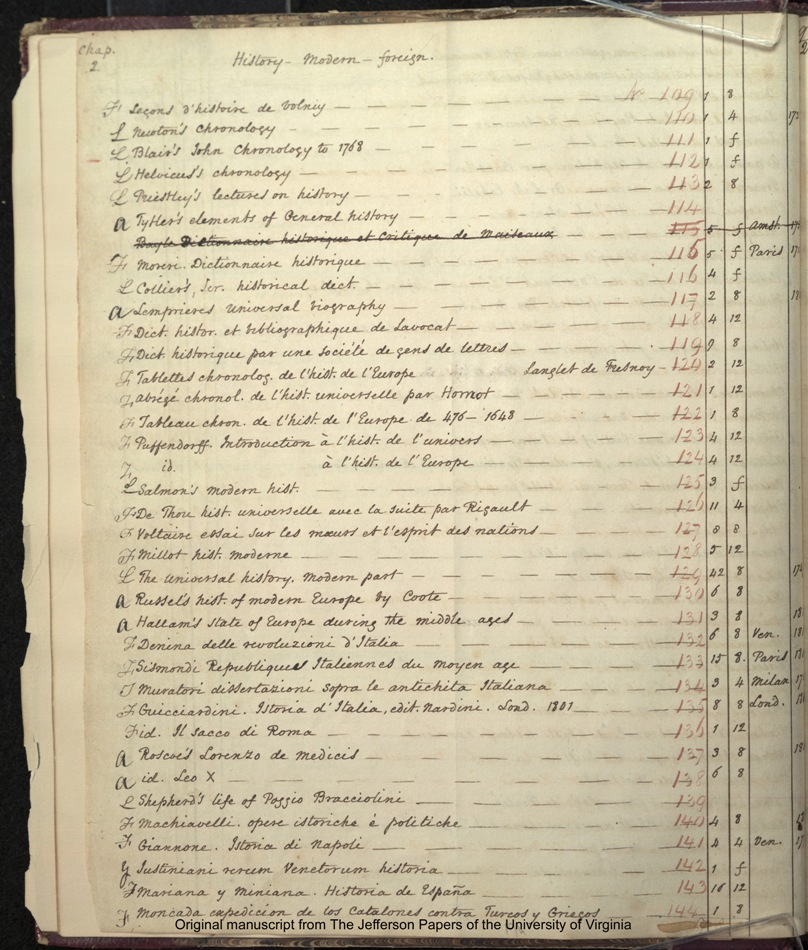 Chap. 2
History - Modern - foreign.
F Leçons d'histoire de Volney — 109 1 8
L Newton's chronology — 110 1 4
L Blair's John Chronology to 1768 — 111 1 f
L Helvicus's chronology — 112 1 f
L Priestley's lectures on history — 113 2 8
a Tytler's elements of General history — 114
Bayle Dictionnaire historique et Critique de Maiseaux 115 5 f Amst.
F Moreri. Dictionnaire historique — 115 5 f Paris
L Collier's, Jer. historical dict. — 116 4 f
a Lemprieres universal biography — 117 2 8
F Dict. histor. et bibliographique de Lavocat — 118 4 12
F Dict. historique par une Société de gens de lettres — 119 9 8
F Tablettes chronolog. de l'hist. de l'Europe Langlet de Fresnoy - 120 2 12
F abrégé chronol. de l'hist. universelle par Hornot — 121 1 12
F Tableau chron. de l'hist. de l'Europe de 476 - 1648 — 122 1 8
F Puffendorff. Introduction à l'hist. de l'univers — 123 4 12
F id. à l'hist. de l'Europe — 124 4 12
L Salmon's modern hist. — 125 3 f
F De Thou hist. universelle avec la suite par Rigault — 126 11 4
F Voltaire essai sur les mœurs et l'esprit des nations — 127 8 8
F Millot hist. moderne — 128 5 12
L The universal history. Modern part — 129 42 8
a Russel's hist. of modern Europe by Coote — 130 6 8
a Hallam's state of Europe during the middle ages — 131 3 8
F Denina delle revoluzioni d'Italia — 132 6 8 Ven.
F Sismondi Republiques Italiennes du moyen age — 133 15 8. Paris
F Muratori dissertazioni sopra le antichita Italiana — 134 3 4 Milan
F Guicciardini. Istoria d'Italia, edit. Nardini. Lond. 1801 — 135 8 8 Lond.
F id. Il sacco di Roma — 136 1 12
a Roscoe's Lorenzo de Medicis — 137 3 8
a id. Leo X — 138 6 8
L Shepherd's life of Poggio Bracciolini — 139
F Machiavelli. opere istoriche é politiche — 140 4 8
F Giannone. Istoria di Napoli — 141 4 4 Ven.
Justiniani rerum Venetorum historia — 142 1 f
F Mariana y Miniana. Historia de España — 143 16 12
F Moncada expedicion de los Catalones contra Turcos y Griegos 144 1 8
Original manuscript from The Jefferson Papers of the University of Virginia